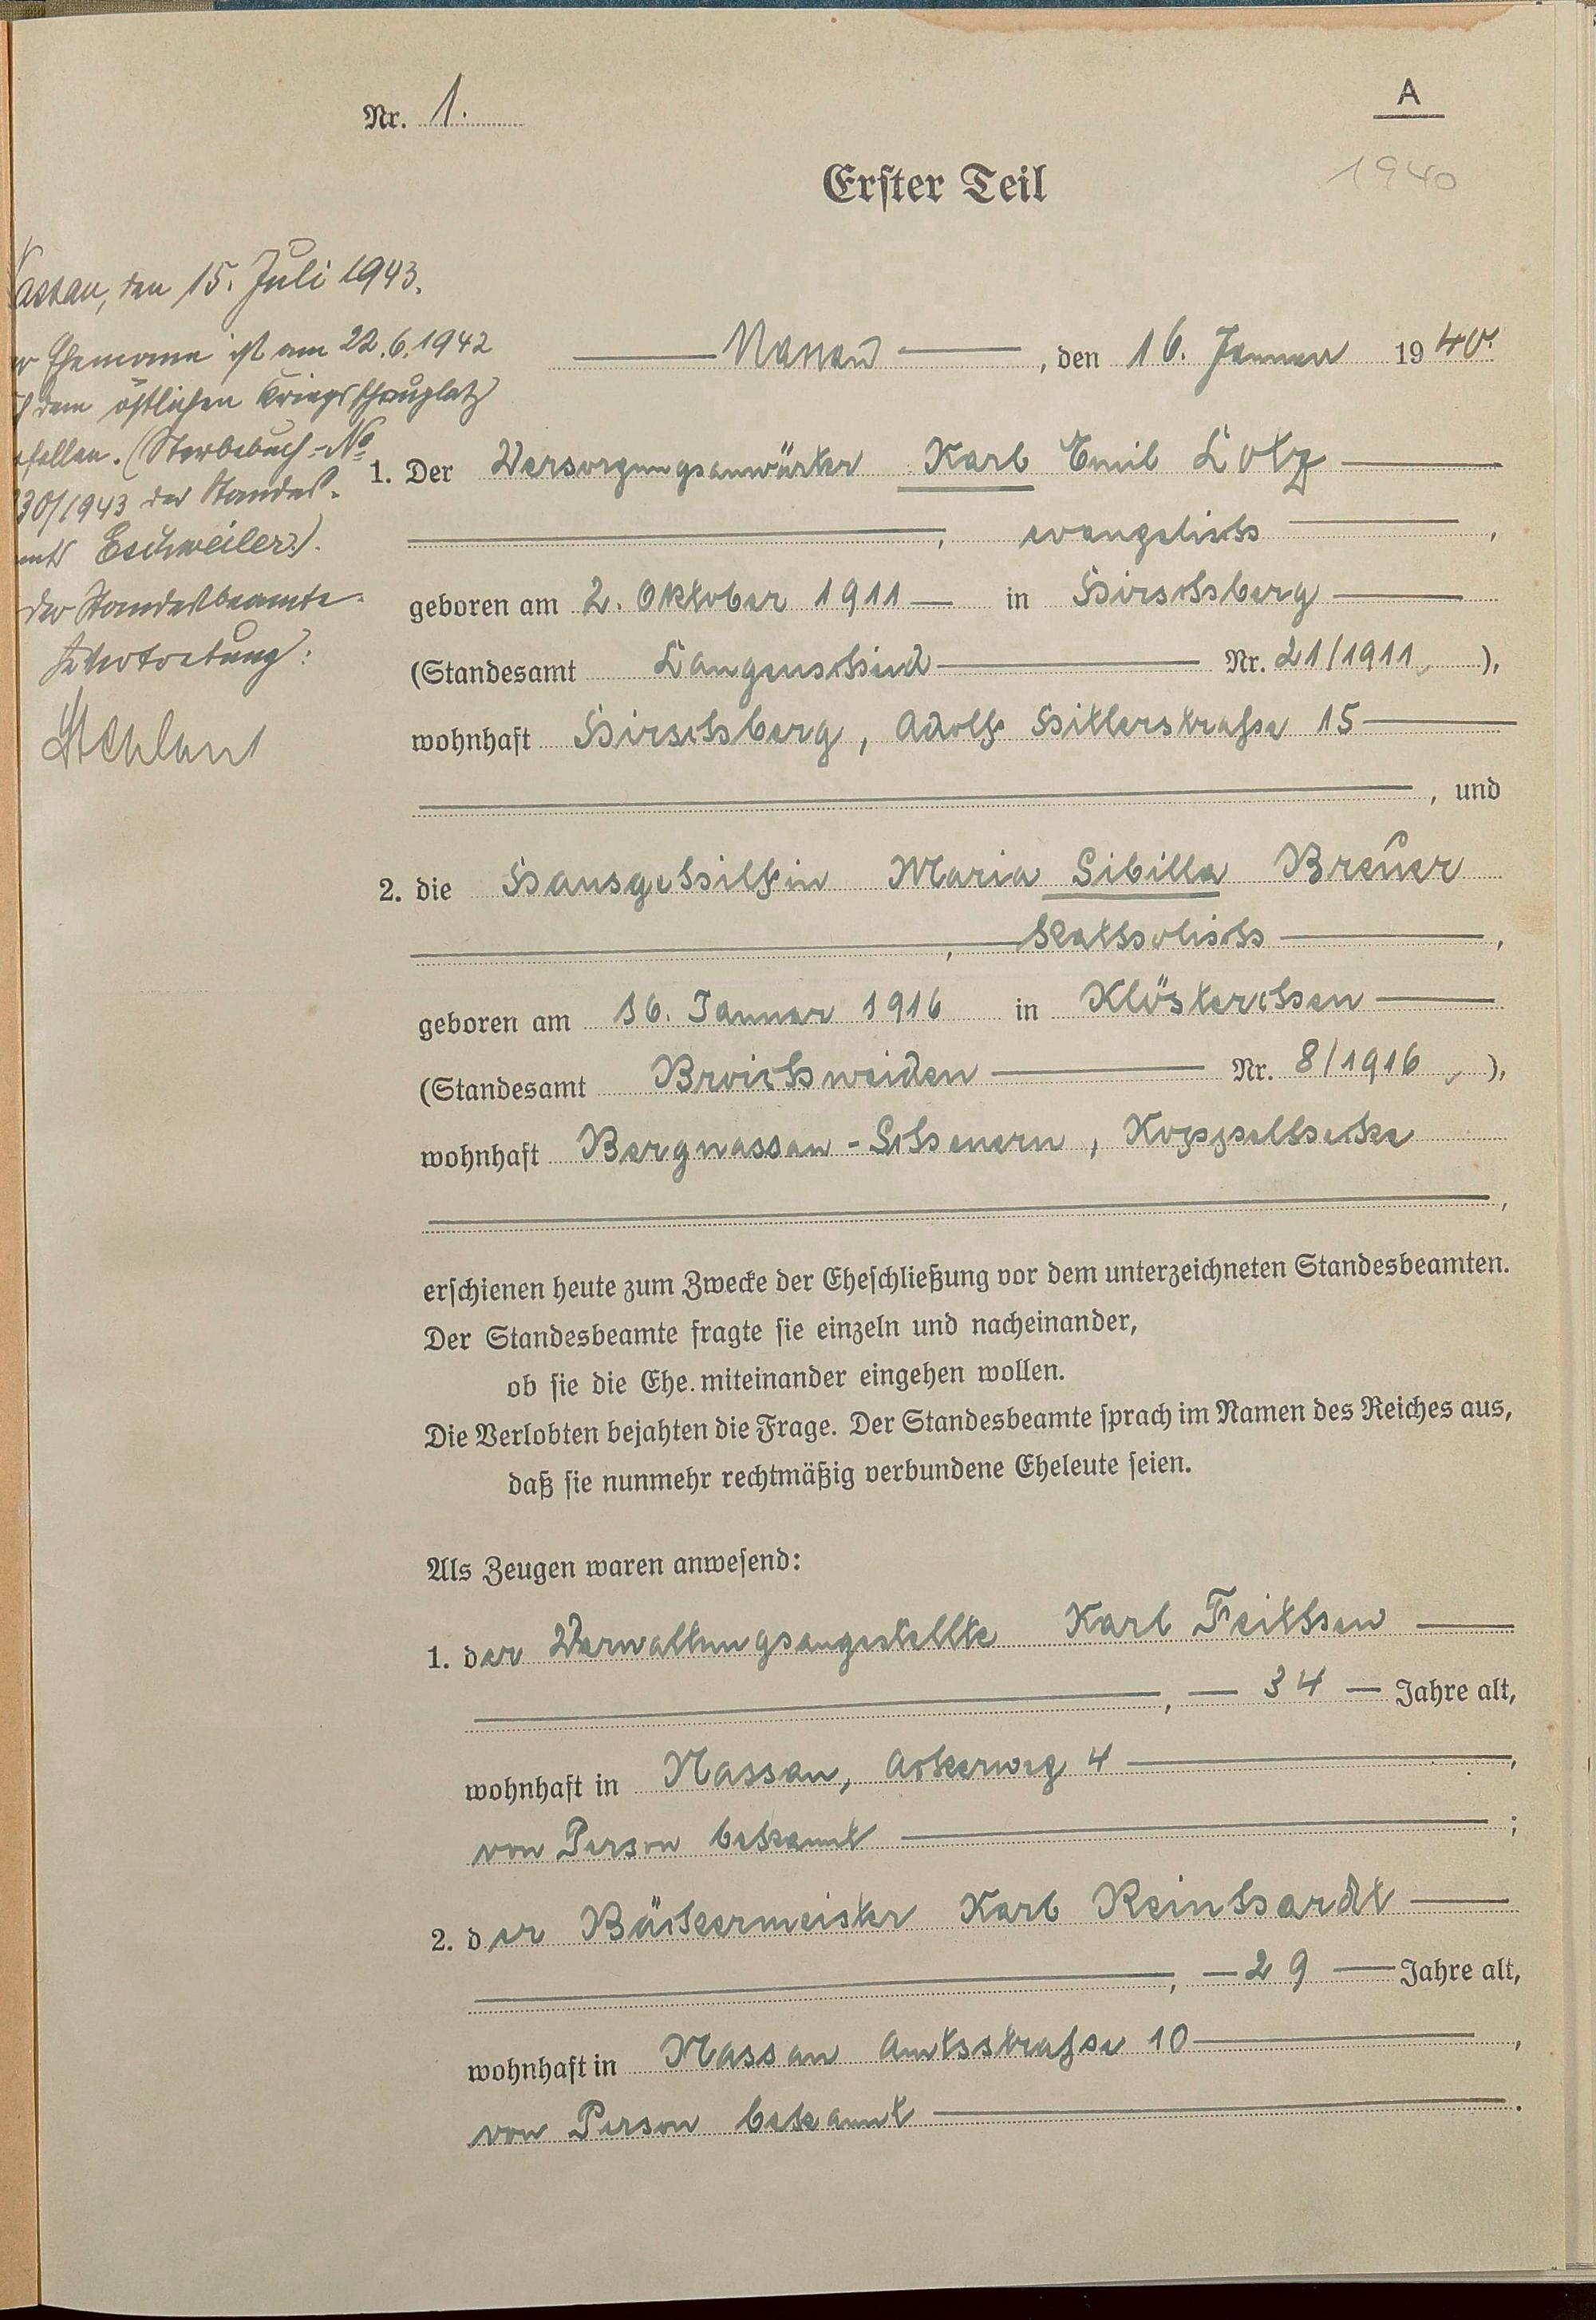 Nr. 1.
A
1940
Erster Teil
Nassau, den 16. Januar 1940.
1. Der Versorgungsanwärter Karl Emil Lotz
, evangelisch ,
geboren am 2. Oktober 1911 in Hirschberg
(Standesamt Langenscheid Nr. 21/1911, ),
wohnhaft Hirschberg, Adolf Hitlerstraße 15
, und
2. die Hausgehilfin Maria Sibilla Breuer
, katholisch ,
geboren am 16. Januar 1916 in Klösterchen
(Standesamt Broichweiden Nr. 8/1916, ),
wohnhaft Bergnassau-Scheuern, Koppelhecke
,
erschienen heute zum Zwecke der Eheschließung vor dem unterzeichneten Standesbeamten.
Der Standesbeamte fragte sie einzeln und nacheinander,
ob sie die Ehe miteinander eingehen wollen.
Die Verlobten bejahten die Frage. Der Standesbeamte sprach im Namen des Reiches aus,
daß sie nunmehr rechtmäßig verbundene Eheleute seien.
Als Zeugen waren anwesend:
1. der Verwaltungsangestellte Karl Feithen
, 34 Jahre alt,
wohnhaft in Nassau, Ackerweg 4 ,
von Person bekannt ;
2. der Bäckermeister Karl Reinhardt
, 29 Jahre alt,
wohnhaft in Nassau Amtsstraße 10 ,
von Person bekannt .
assau, den 15. Juli 1943.
r Ehemann ist am 22.6.1942
f dem östlichen Kriegsschauplatz
efallen. (Sterbebuch-No
30/1943 des Standes-
amts Eschweiler).
Der Standesbeamte
In Vertretung: